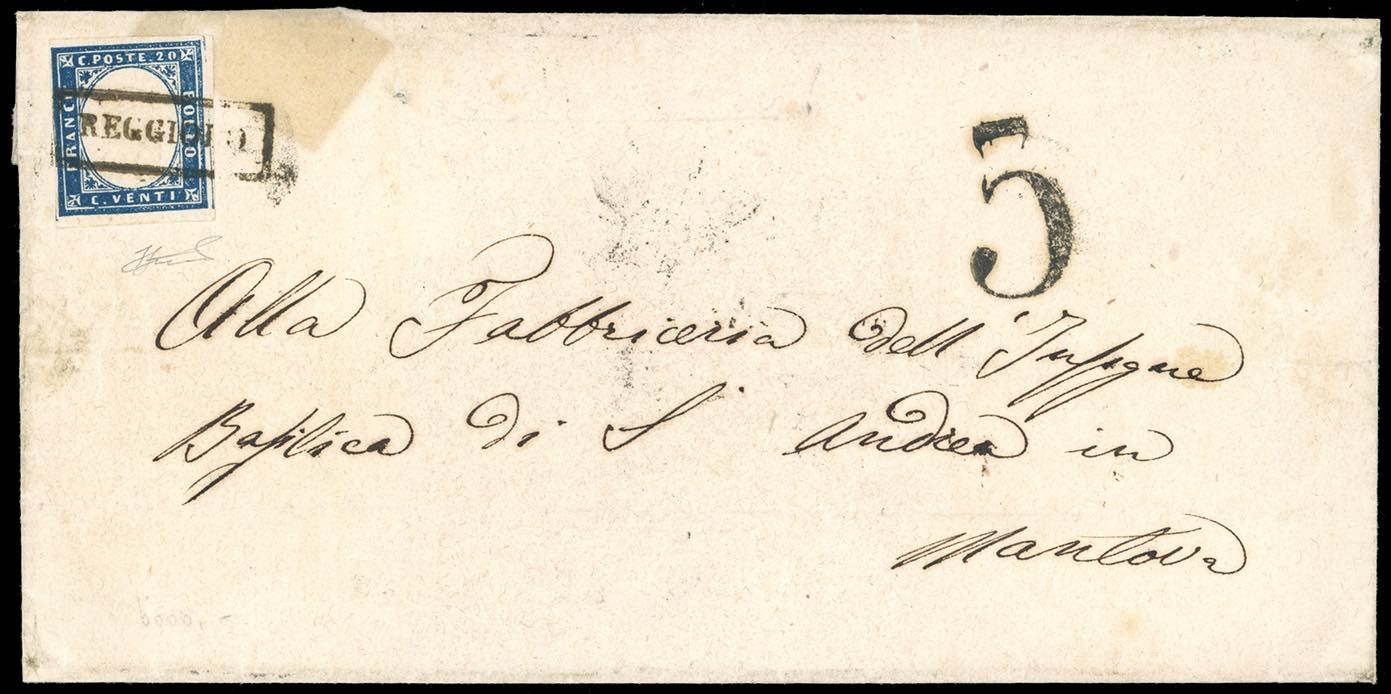 C. POSTE. 20
FRANCO
BOLLO
C. VENTI
REGGIOLO
5
Alla Fabbriceria dell'Insigne
Basilica di S Andrea in
Mantova